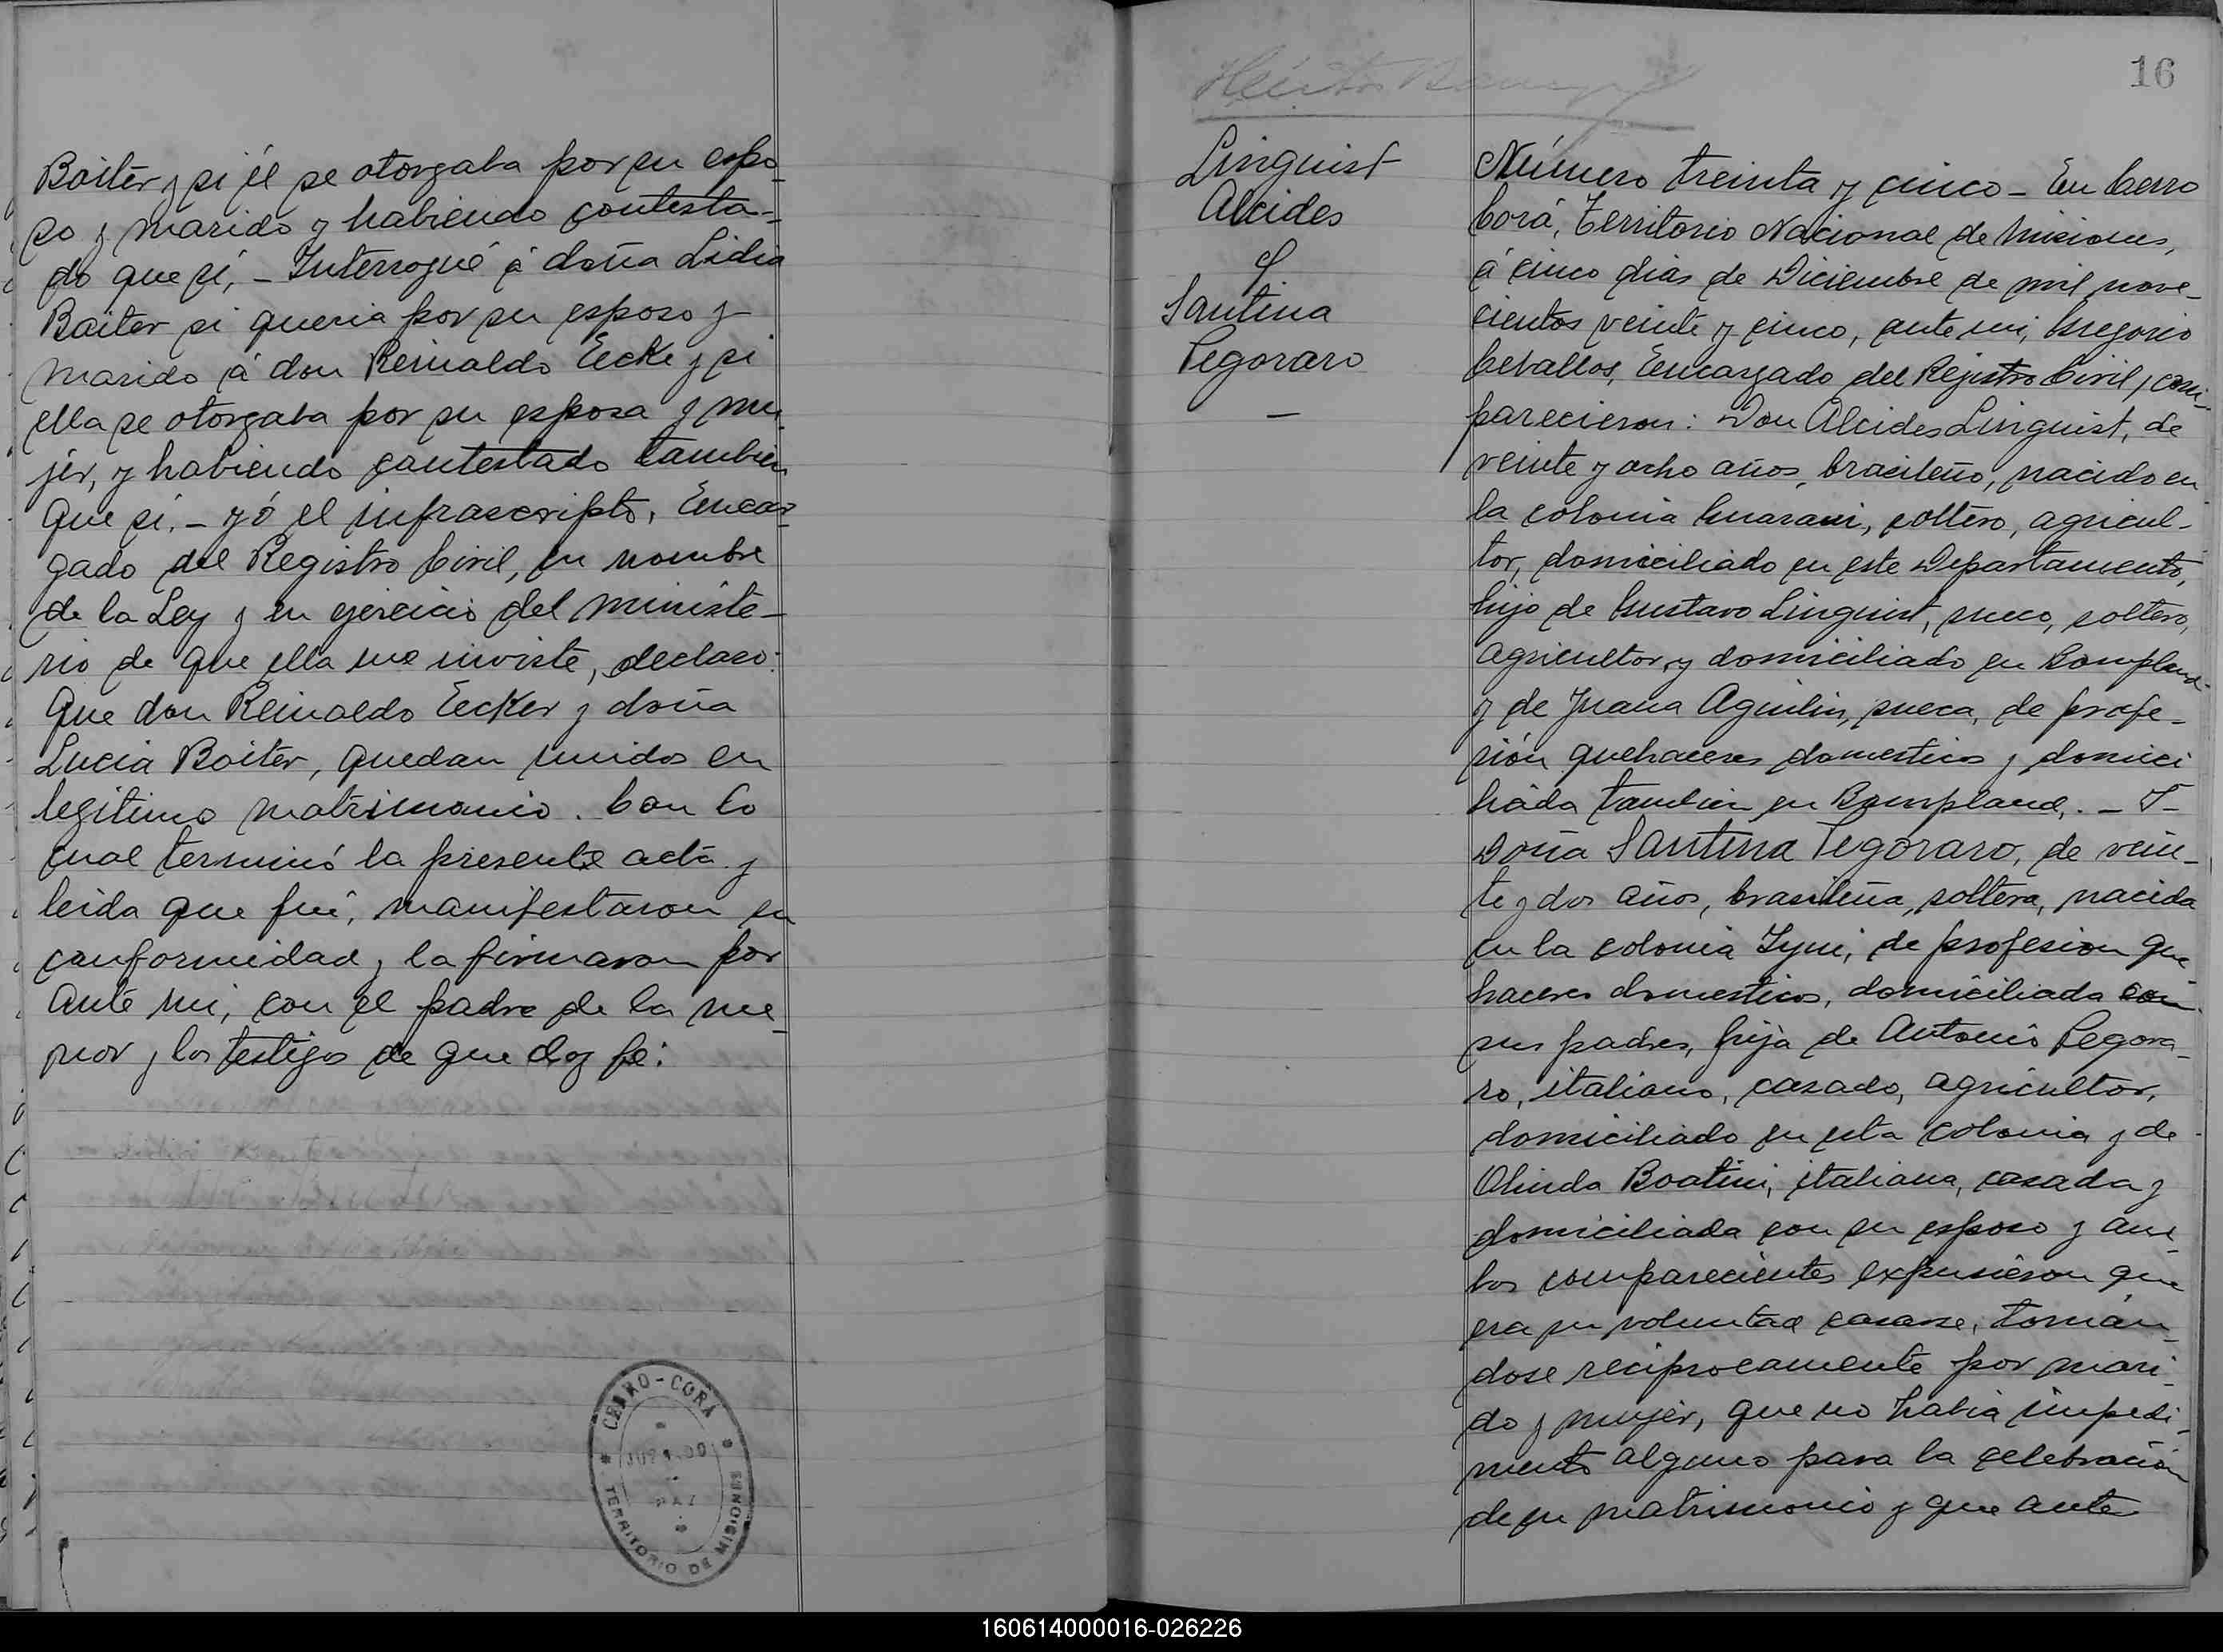 Boiter y si él se otorgaba por su espo-
so y marido y habiendo contesta-
do que sí, - Interrogué á doña Lidia
Boiter si queria por su esposo y
marido á don Reinaldo Eecke y si
ella se otorgaba por su esposa y mu-
jer, y habiendo contestado tambien
que sí. - yó el infraescripto, Encar-
gado del Registro Civil, en nombre
de la Ley y en ejercicio del ministe-
rio de que ella me inviste, declaro:
Que don Reinaldo Eecker y doña
Lucia Boiter, quedan unidos en
legitimo matrimonio. Con lo
cual terminó la presente acta y
leida que fué, manifestaron su
conformidad y la firmaron por
ante mi, con el padre de la me-
nor y los testigos de que doy fe:
CERRO-CORÁ
JUZGADO
DE
PAZ
TERRITORIO DE MISIONES
16
Linguist
Alcides
y
Santina
Pegoraro
Número treinta y cinco - En Cerro
Corá, Territorio Nacional de Misiones,
á cinco dias de Diciembre de mil nove-
cientos veinte y cinco, ante mi, Gregorio
Ceballos, Encargado del Registro Civil, com-
parecieron: Don Alcides Linguist, de
veinte y ocho años, brasileño, nacido en
la colonia Guarani, soltero, agricul-
tor, domiciliado en este Departamento,
hijo de Gustavo Linguist, sueco, soltero,
agricultor, y domiciliado en Bompland
y de Juana Aguilin, sueca, de profe-
sión quehaceres domesticos y domici
liada tambien en Bompland. -
Doña Santina Pegoraro, de vein-
te y dos años, brasileña, soltera, nacida
en la colonia Iyui, de profesion que
haceres domesticos, domiciliada con
sus padres, hija de Antonio Pegora-
ro, italiano, casado, agricultor,
domiciliado en esta colonia y de
Olinda Boatini, italiana, casada y
domiciliada con su esposo y am-
bos comparecientes expusieron que
era su voluntad casarse, tomán-
dose reciprocamente por mari-
do y mujer, que no habia impedi-
mento alguno para la celebración
de su matrimonio y que ante
160614000016-026226